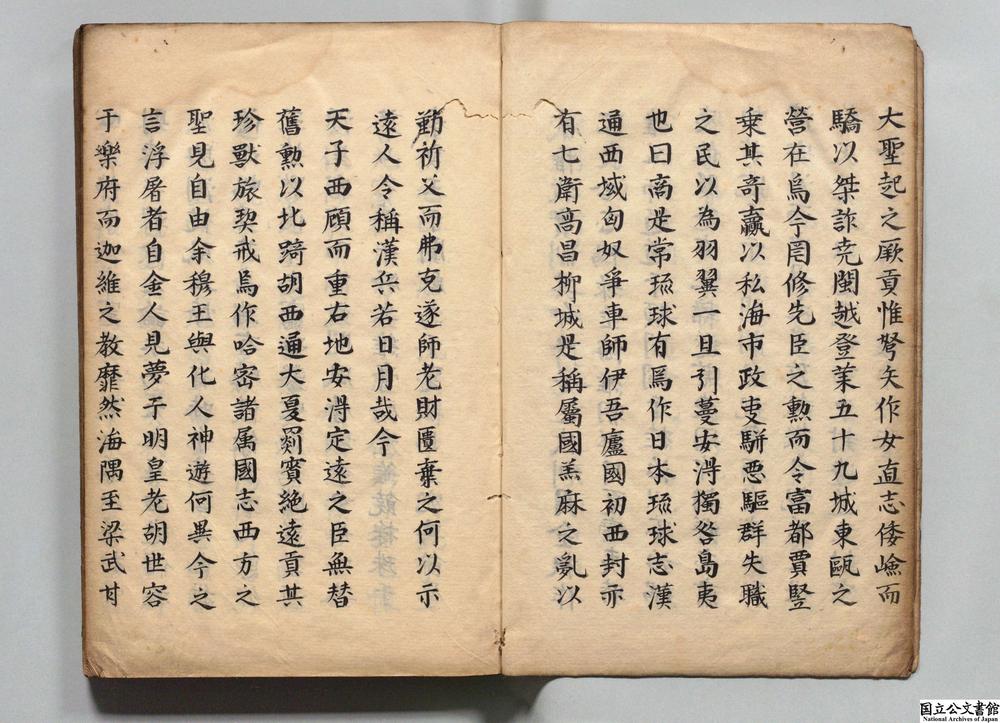 大聖起之厥貢惟弩矢作女直志倭嶮而
驕以桀詐堯閩越登萊五十九城東甌之
營在焉今罔修先臣之勲而令富都賈豎
乗其奇贏以私海市政吏駢惡驅群失職
之民以為羽翼一旦引蔓安淂獨咎島夷
也曰高是常琉球有焉作日本琉球志漢
通西域匈奴爭車師伊吾廬國初西封亦
有七衛高昌柳城是稱屬國羔麻之亂以
勤祈父而弗克遂師老財匱棄之何以示
遠人今稱漢兵若日月哉今
天子西顧而重右地安淂定遠之臣無替
舊勲以比踦胡西通大夏罽賓絶遠貢其
珍獸旅契戒焉作哈宻諸属國志西方之
聖見自由余穆王與化人神遊何異今之
言浮屠者自金人見夢于明皇老胡世容
于樂府而迦維之教靡然海隅至梁武甘
国立公文書館
National Archives of Japan